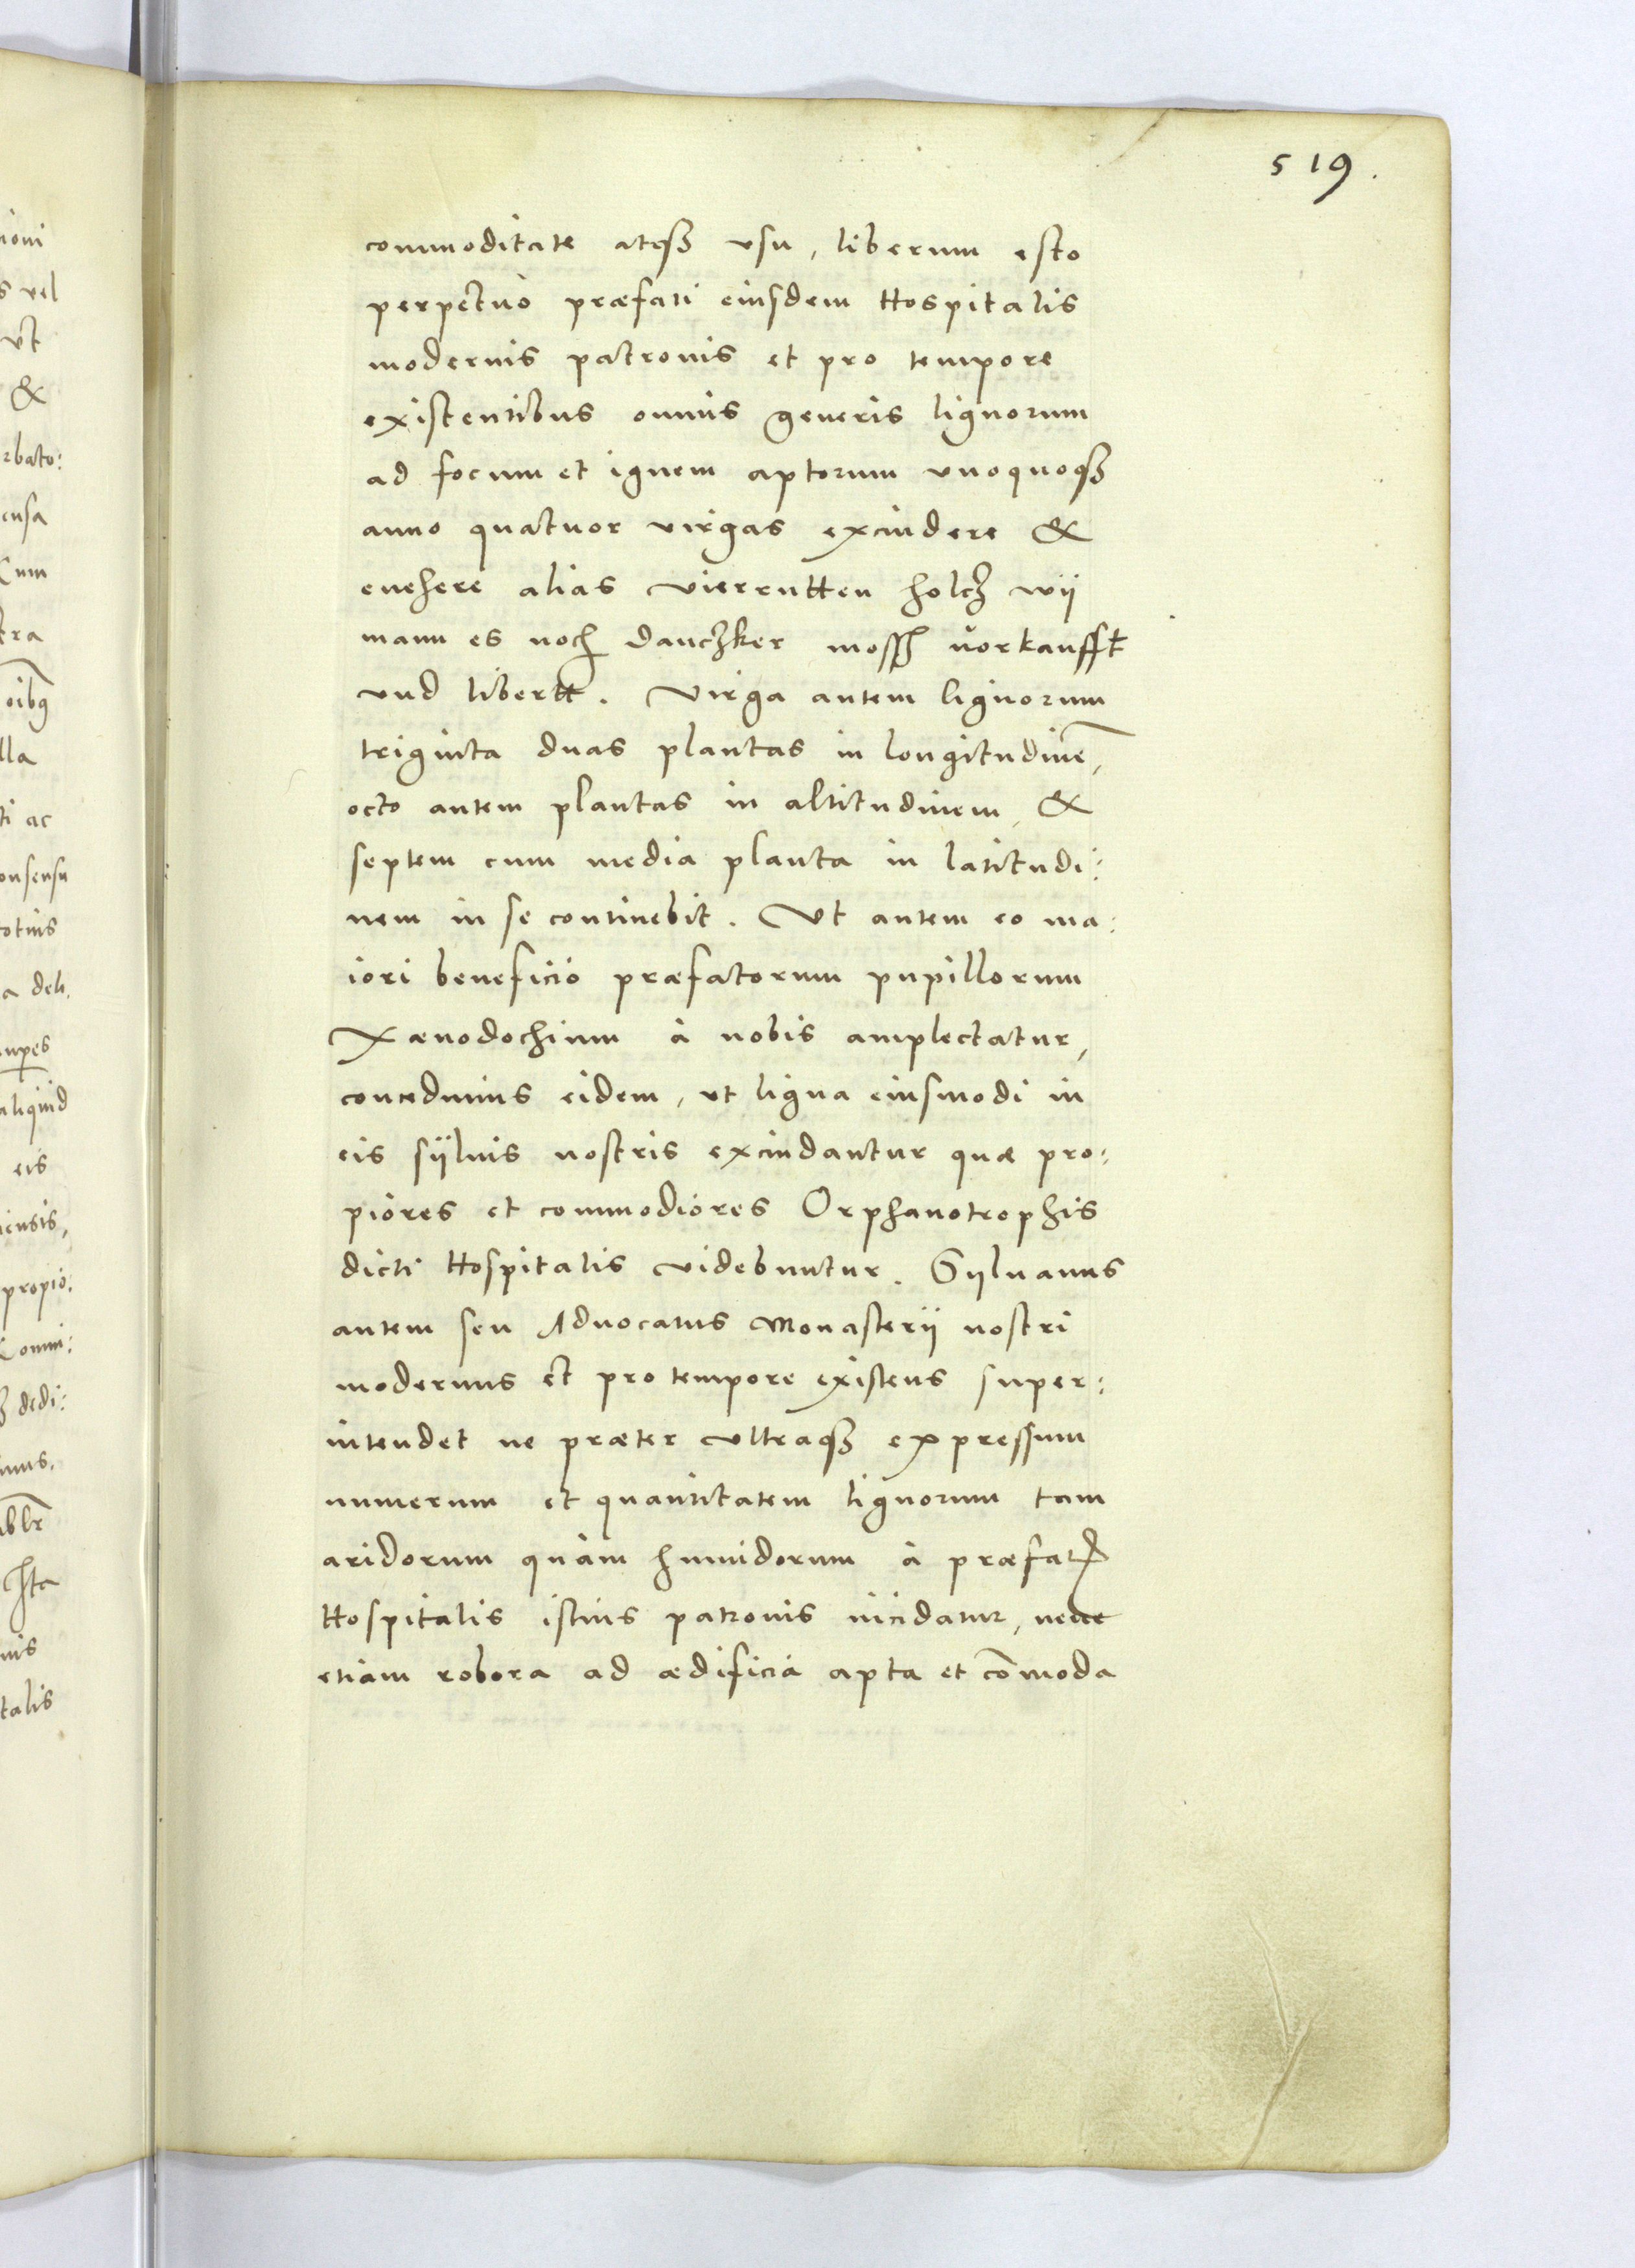 519.
commoditate atqȝ vsu, liberum esto
perpetuò præfati eiusdem Hospitalis
modernis patronis et pro tempore
existentibus omnis generis lignorum
ad focum et ignem aptorum vnoquoqȝ
anno quatuor virgas excindere &
euehere alias vierrutten holcȝ wij
mann es noch Dancȝker moss vorkaufft
vnd libertt. Virga autem lignorum
triginta duas plantas in longitudinē,
octo autem plantas in altitudinem, &
septem cum media planta in latitudi:
nem in se continebit. Vt autem eo ma:
iori beneficio præfatorum pupillorum
Xænodochium à nobis amplectatur,
concedimus eidem, vt ligna eiusmodi in
eis sÿluis nostris excindantur quæ pro:
piores et commodiores Orphanotrophis
dicti Hospitalis videbuntur. Sÿluanus
autem seu Aduocatus Monasterij nostri
modernus et pro tempore existens super:
intendet ne præter vltraqȝ expressum
numerum et quantitatem lignorum tam
aridorum quàm humidorum à præfat
Hospitalis istius patronis incidatur, neue
etiam robora ad ædificia apta et cōmoda